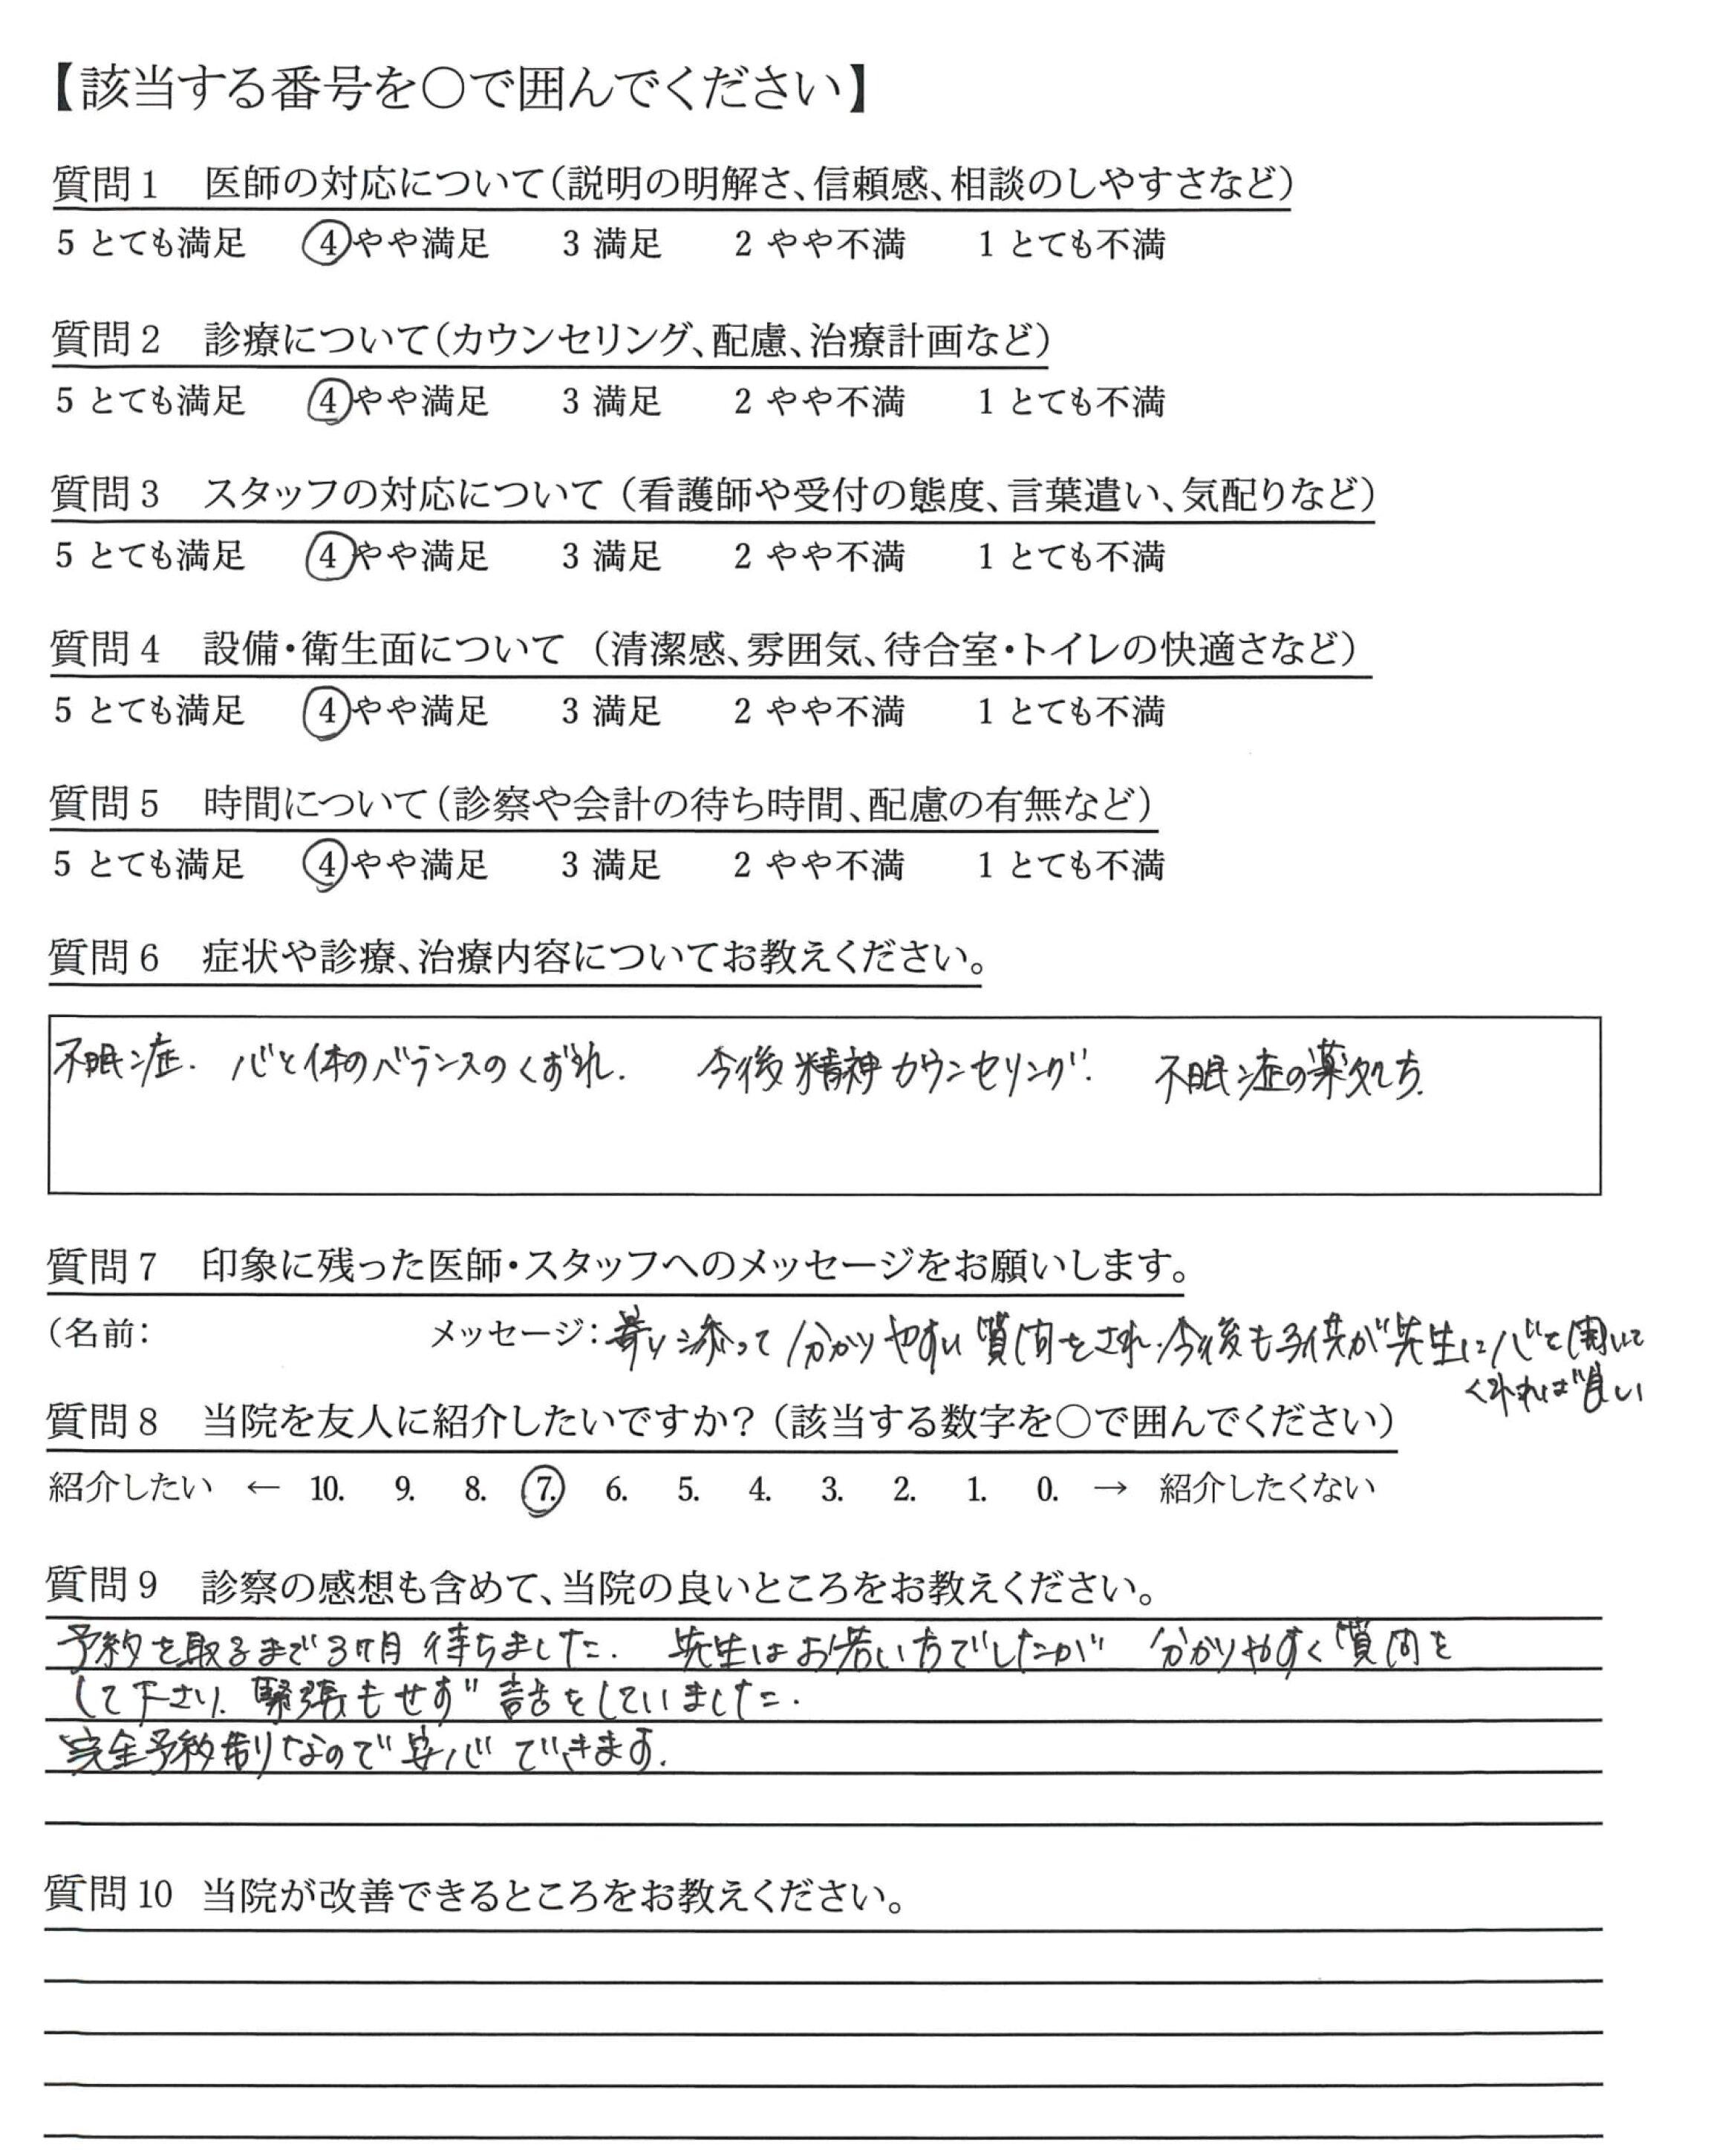 【該当する番号を〇で囲んでください】
質問1 医師の対応について（説明の明解さ、信頼感、相談のしやすさなど）
5 とても満足 4 やや満足 3 満足 2 やや不満 1 とても不満
質問2 診療について（カウンセリング、配慮、治療計画など）
5 とても満足 4 やや満足 3 満足 2 やや不満 1 とても不満
質問3 スタッフの対応について（看護師や受付の態度、言葉遣い、気配りなど）
5 とても満足 4 やや満足 3 満足 2 やや不満 1 とても不満
質問4 設備・衛生面について（清潔感、雰囲気、待合室・トイレの快適さなど）
5 とても満足 4 やや満足 3 満足 2 やや不満 1 とても不満
質問5 時間について（診察や会計の待ち時間、配慮の有無など）
5 とても満足 4 やや満足 3 満足 2 やや不満 1 とても不満
質問6 症状や診療、治療内容についてお教えください。
不眠症. 心と体のバランスのくずれ. 今後精神カウンセリング. 不眠症の薬処方.
質問7 印象に残った医師・スタッフへのメッセージをお願いします。
（名前： メッセージ：寄り添って分かりやすい質問をされ、今後も子供が先生に心を開いて
くれれば良い
質問8 当院を友人に紹介したいですか？（該当する数字を〇で囲んでください）
紹介したい ← 10. 9. 8. 7. 6. 5. 4. 3. 2. 1. 0. → 紹介したくない
質問9 診察の感想も含めて、当院の良いところをお教えください。
予約を取るまで3ヶ月待ちました. 先生はお若い方でしたが 分かりやすく質問を
して下さり、緊張もせず話をしていました.
完全予約制なので安心できます.
質問10 当院が改善できるところをお教えください。